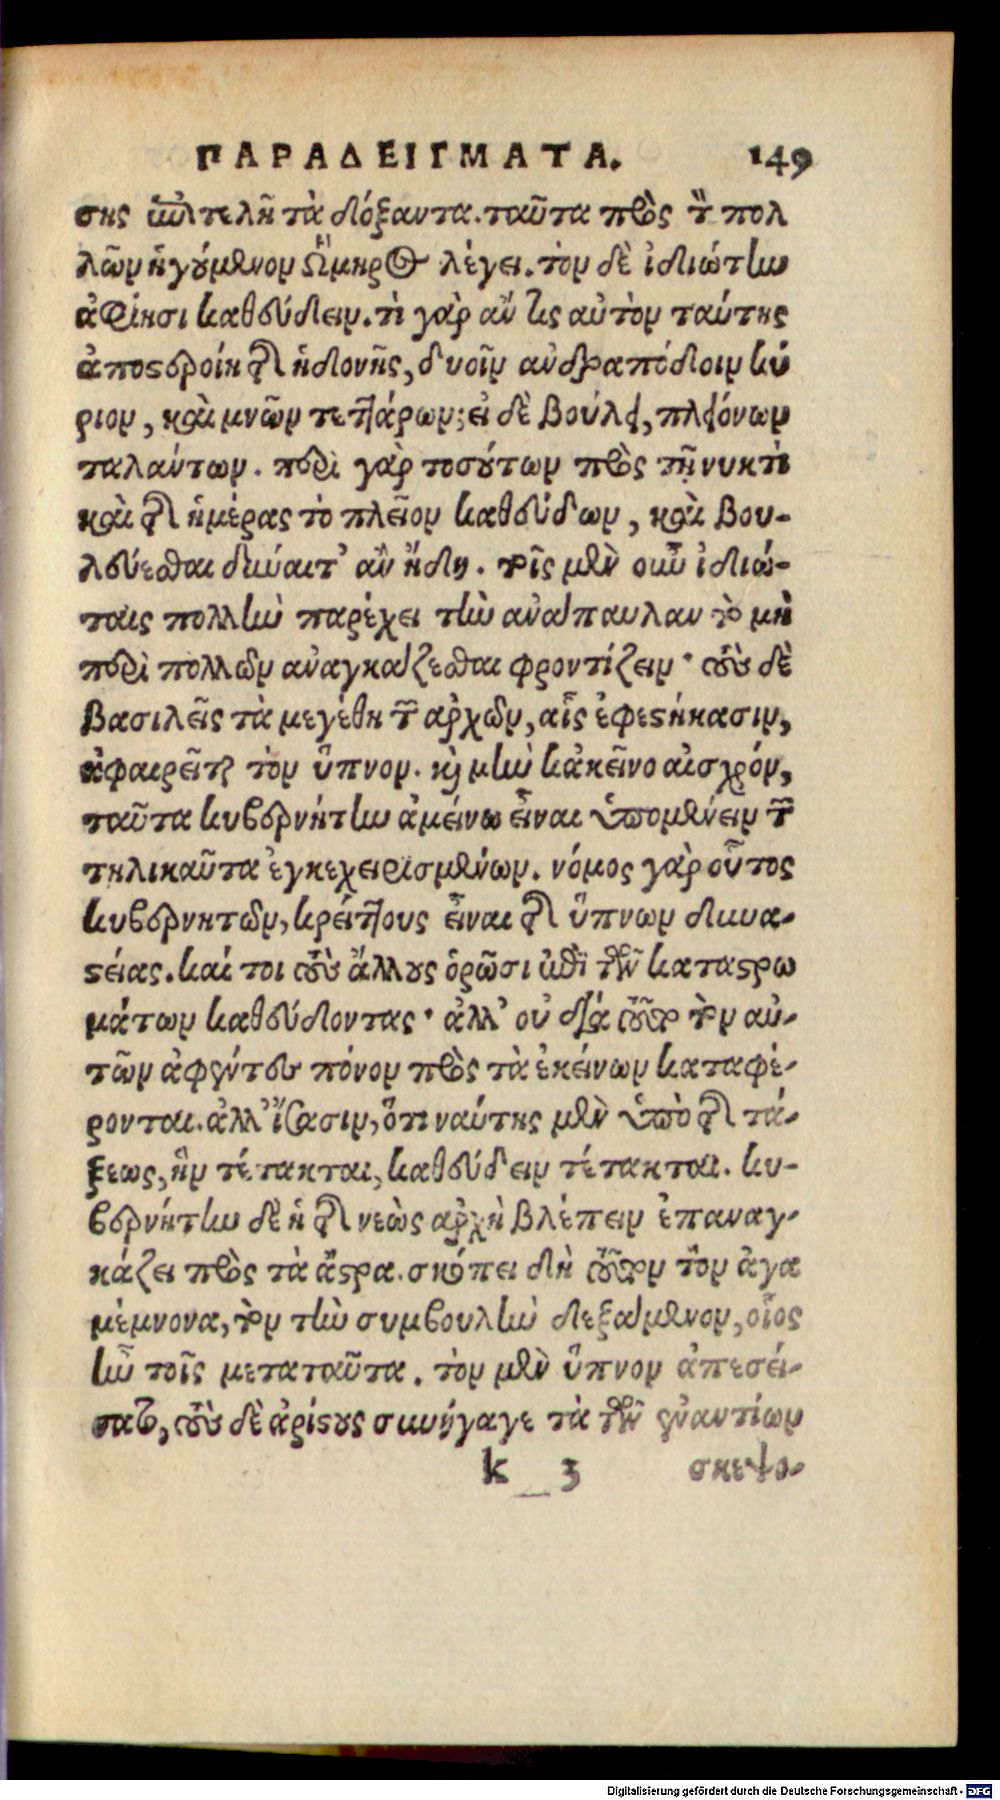 ΠΑΡΑΔΕΙΓΜΑΤΑ. 149
σης ἐπιτελῆ τὰ δόξαντα. ταῦτα πρὸς τὸν πολ
λῶν ἡγούμενον Ὅμηρος λέγει. τὸν δὲ ἰδιώτην
ἀφίησι καθεύδειν. τί γὰρ ἄν τις αὐτὸν ταύτης
ἀποστεροίη τῆς ἡδονῆς, δυοῖν ἀνδραπόδοιν κύ
ριον, καὶ μνῶν τεττάρων; εἰ δὲ βούλει, πλειόνων
ταλάντων. περὶ γὰρ τοσούτων πρὸς τῇ νυκτὶ
καὶ τῆς ἡμέρας τὸ πλεῖον καθεύδων, καὶ βου-
λεύεσθαι δύναιτ’ ἂν ἤδη. τοῖς μὲν οὖν ἰδιώ-
ταις πολλὴν παρέχει τὴν ἀνάπαυλαν τὸ μὴ
περὶ πολλῶν ἀναγκάζεσθαι φροντίζειν· τοὺς δὲ
βασιλεῖς τὰ μεγέθη τῶν ἀρχῶν, αἷς ἐφεστήκασιν,
ἀφαιρεῖται τὸν ὕπνον. καὶ μὴν κἀκεῖνο αἰσχρόν,
ταῦτα κυβερνήτην ἀμείνω εἶναι ὑπομένειν τῶν
τηλικαῦτα ἐγκεχειρισμένων. νόμος γὰρ οὗτος
κυβερνητῶν, κρείττους εἶναι τῆς ὕπνων δυνα-
στείας. καί τοι τοὺς ἄλλους ὁρῶσι ἐπὶ τῶν καταστρω
μάτων καθεύδοντας· ἀλλ’ οὐ διὰ τοῦτο τὸν αὑ-
τῶν ἀφέντες πόνον πρὸς τὰ ἐκείνων καταφέ-
ρονται. ἀλλ’ ἴσασιν, ὅτι ναύτης μὲν ὑπὸ τῆς τά-
ξεως, ἣν τέτακται, καθεύδειν τέτακται. κυ-
βερνήτην δὲ ἡ τῆς νεὼς ἀρχὴ βλέπειν ἐπαναγ-
κάζει πρὸς τὰ ἄστρα. σκόπει δὴ τοῦτον τὸν ἀγα
μέμνονα, τὸν τὴν συμβουλὴν δεξάμενον, οἷος
ἦν τοῖς μεταταῦτα. τὸν μὲν ὕπνον ἀπεσεί-
σατο, τοὺς δὲ ἀρίστους συνήγαγε τὰ τῶν ἐναντίων
k 3 σκεψο-
Digitalisierung gefördert durch die Deutsche Forschungsgemeinschaft - DFG